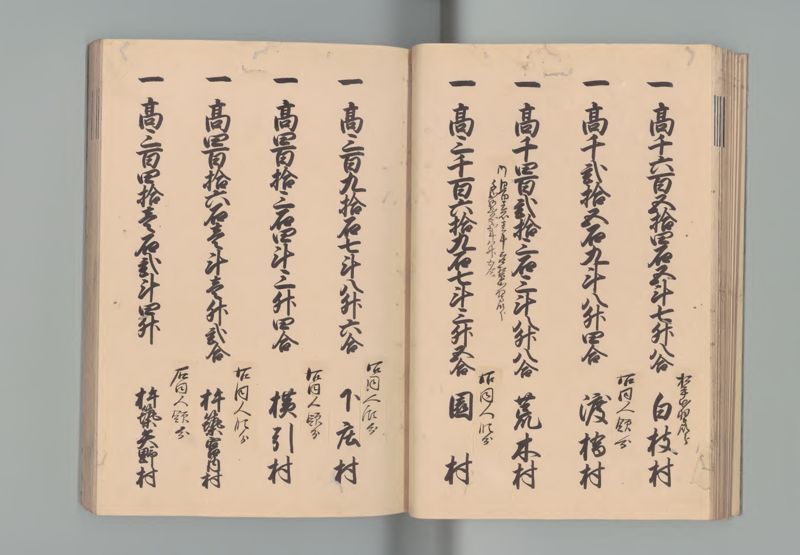 一 高千六百五拾四石五斗七升八合
白枝村
一 高千弐拾五石九斗八升四合
右同人領分
渡橋村
一 高千四百弐拾二石三斗八升八合
荒木村
一 高三千百六拾九石七斗三升五合
右同人領分
園村
一 高三百九拾石七斗八升六合
右同人領分
下庄村
一 高四百拾三石四斗三升四合
右同人領分
横引村
一 高四百拾六石壱斗壱升弐合
右同人領分
杵築宮内村
一 高三百四拾壱石弐斗四升
右同人領分
杵築矢野村